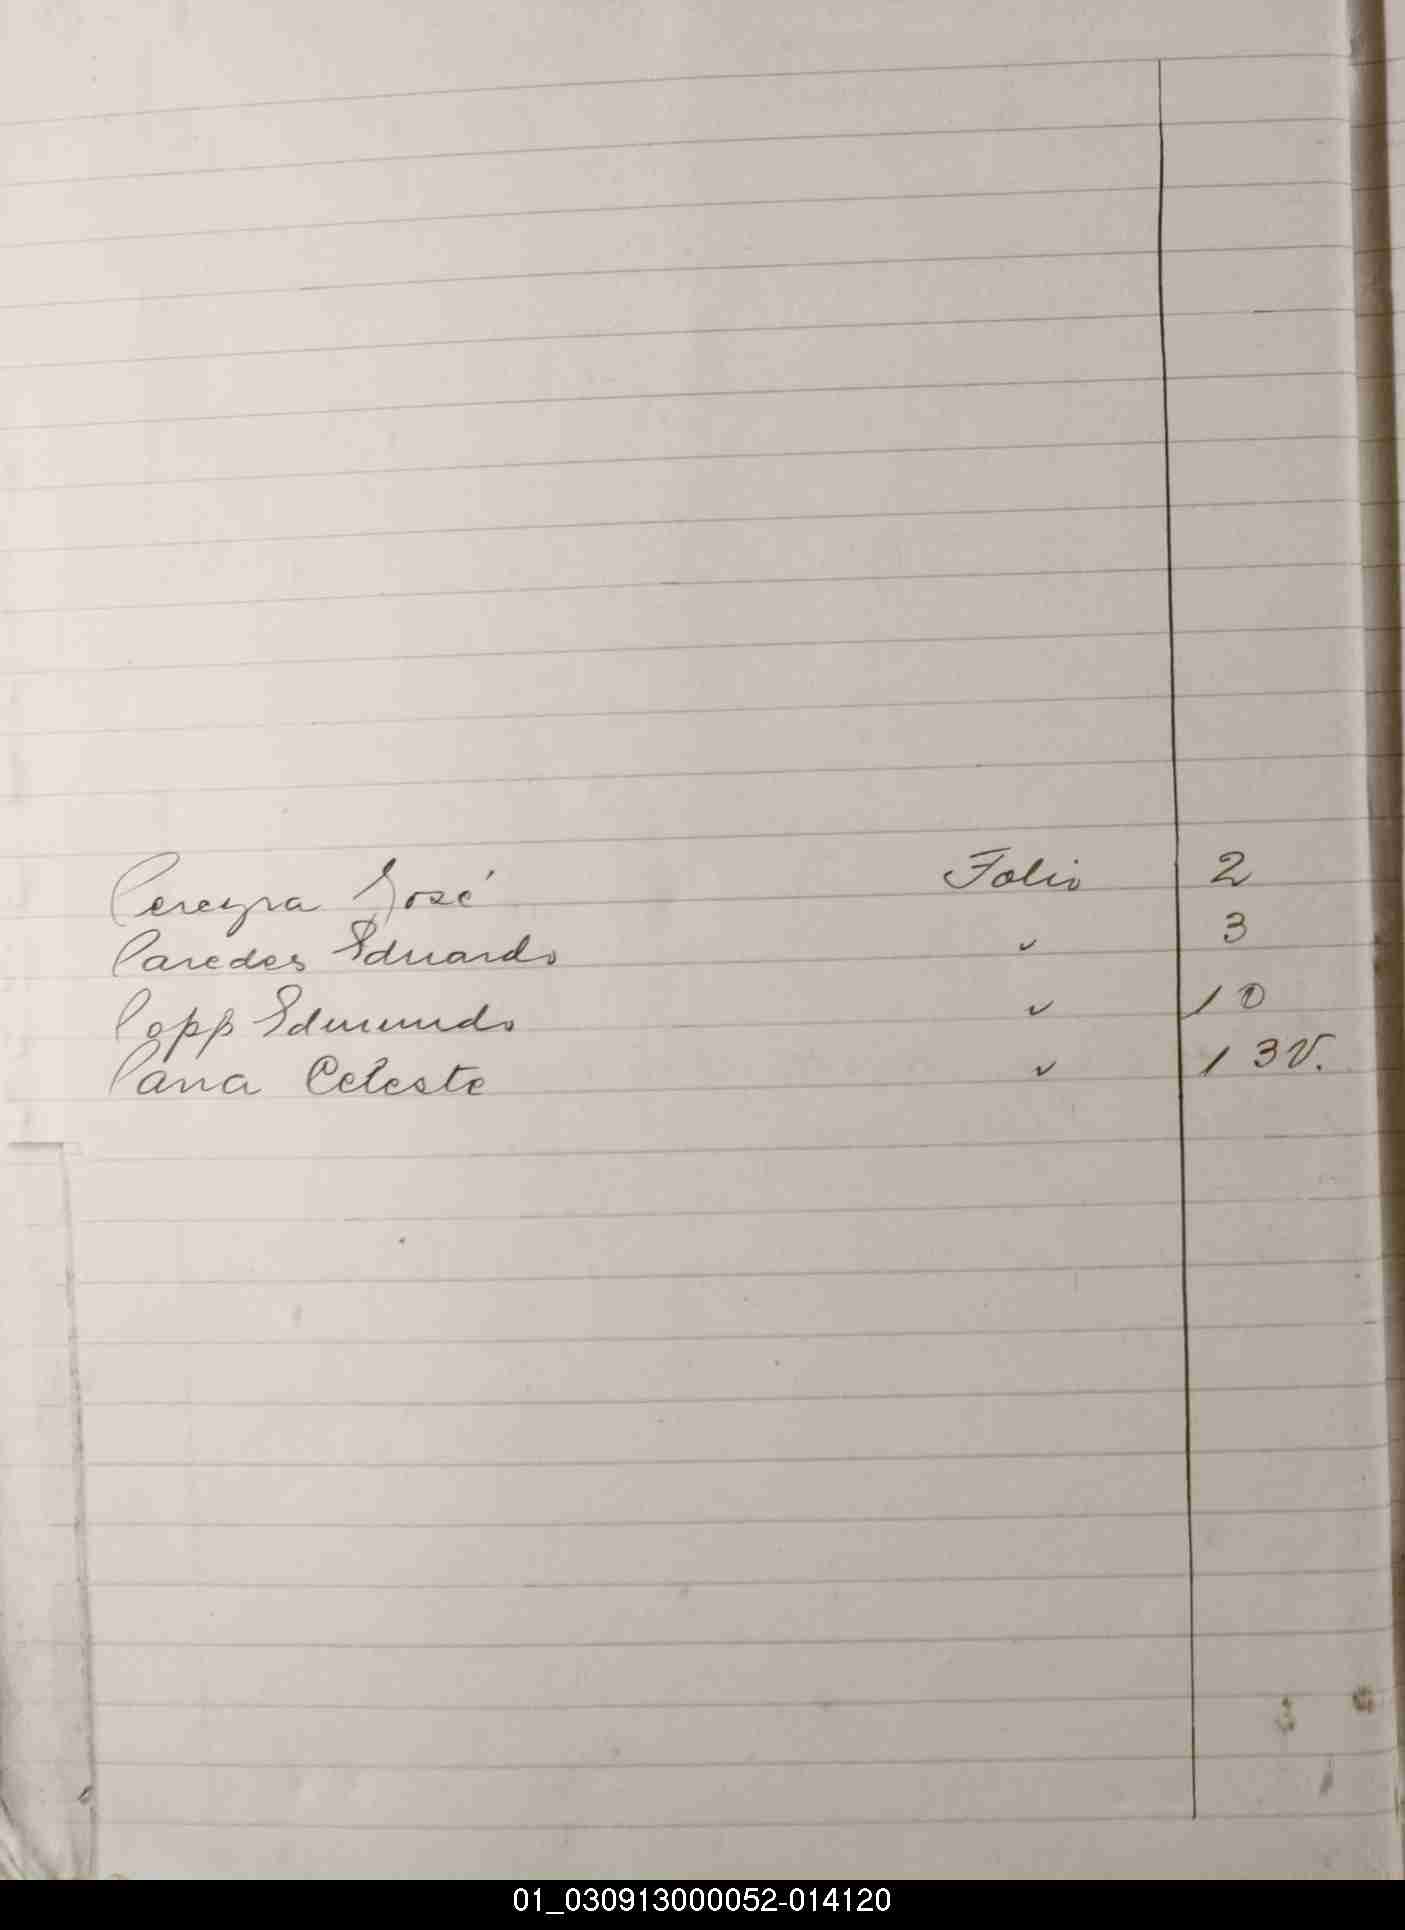 Pereyra José Folio 2
Paredes Eduardo " 3
Popp Edmundo " 10
Parra Celeste " 13V.
01_030913000052-014120